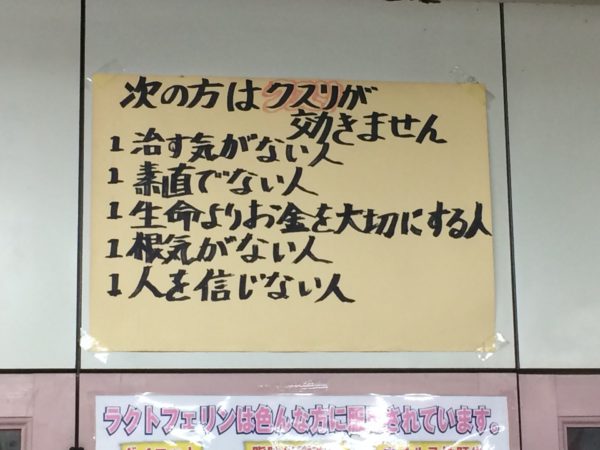 次の方はクスリが
効きません
1 治す気がない人
1 素直でない人
1 生命よりお金を大切にする人
1 根気がない人
1 人を信じない人
ラクトフェリンは色んな方に
されています。